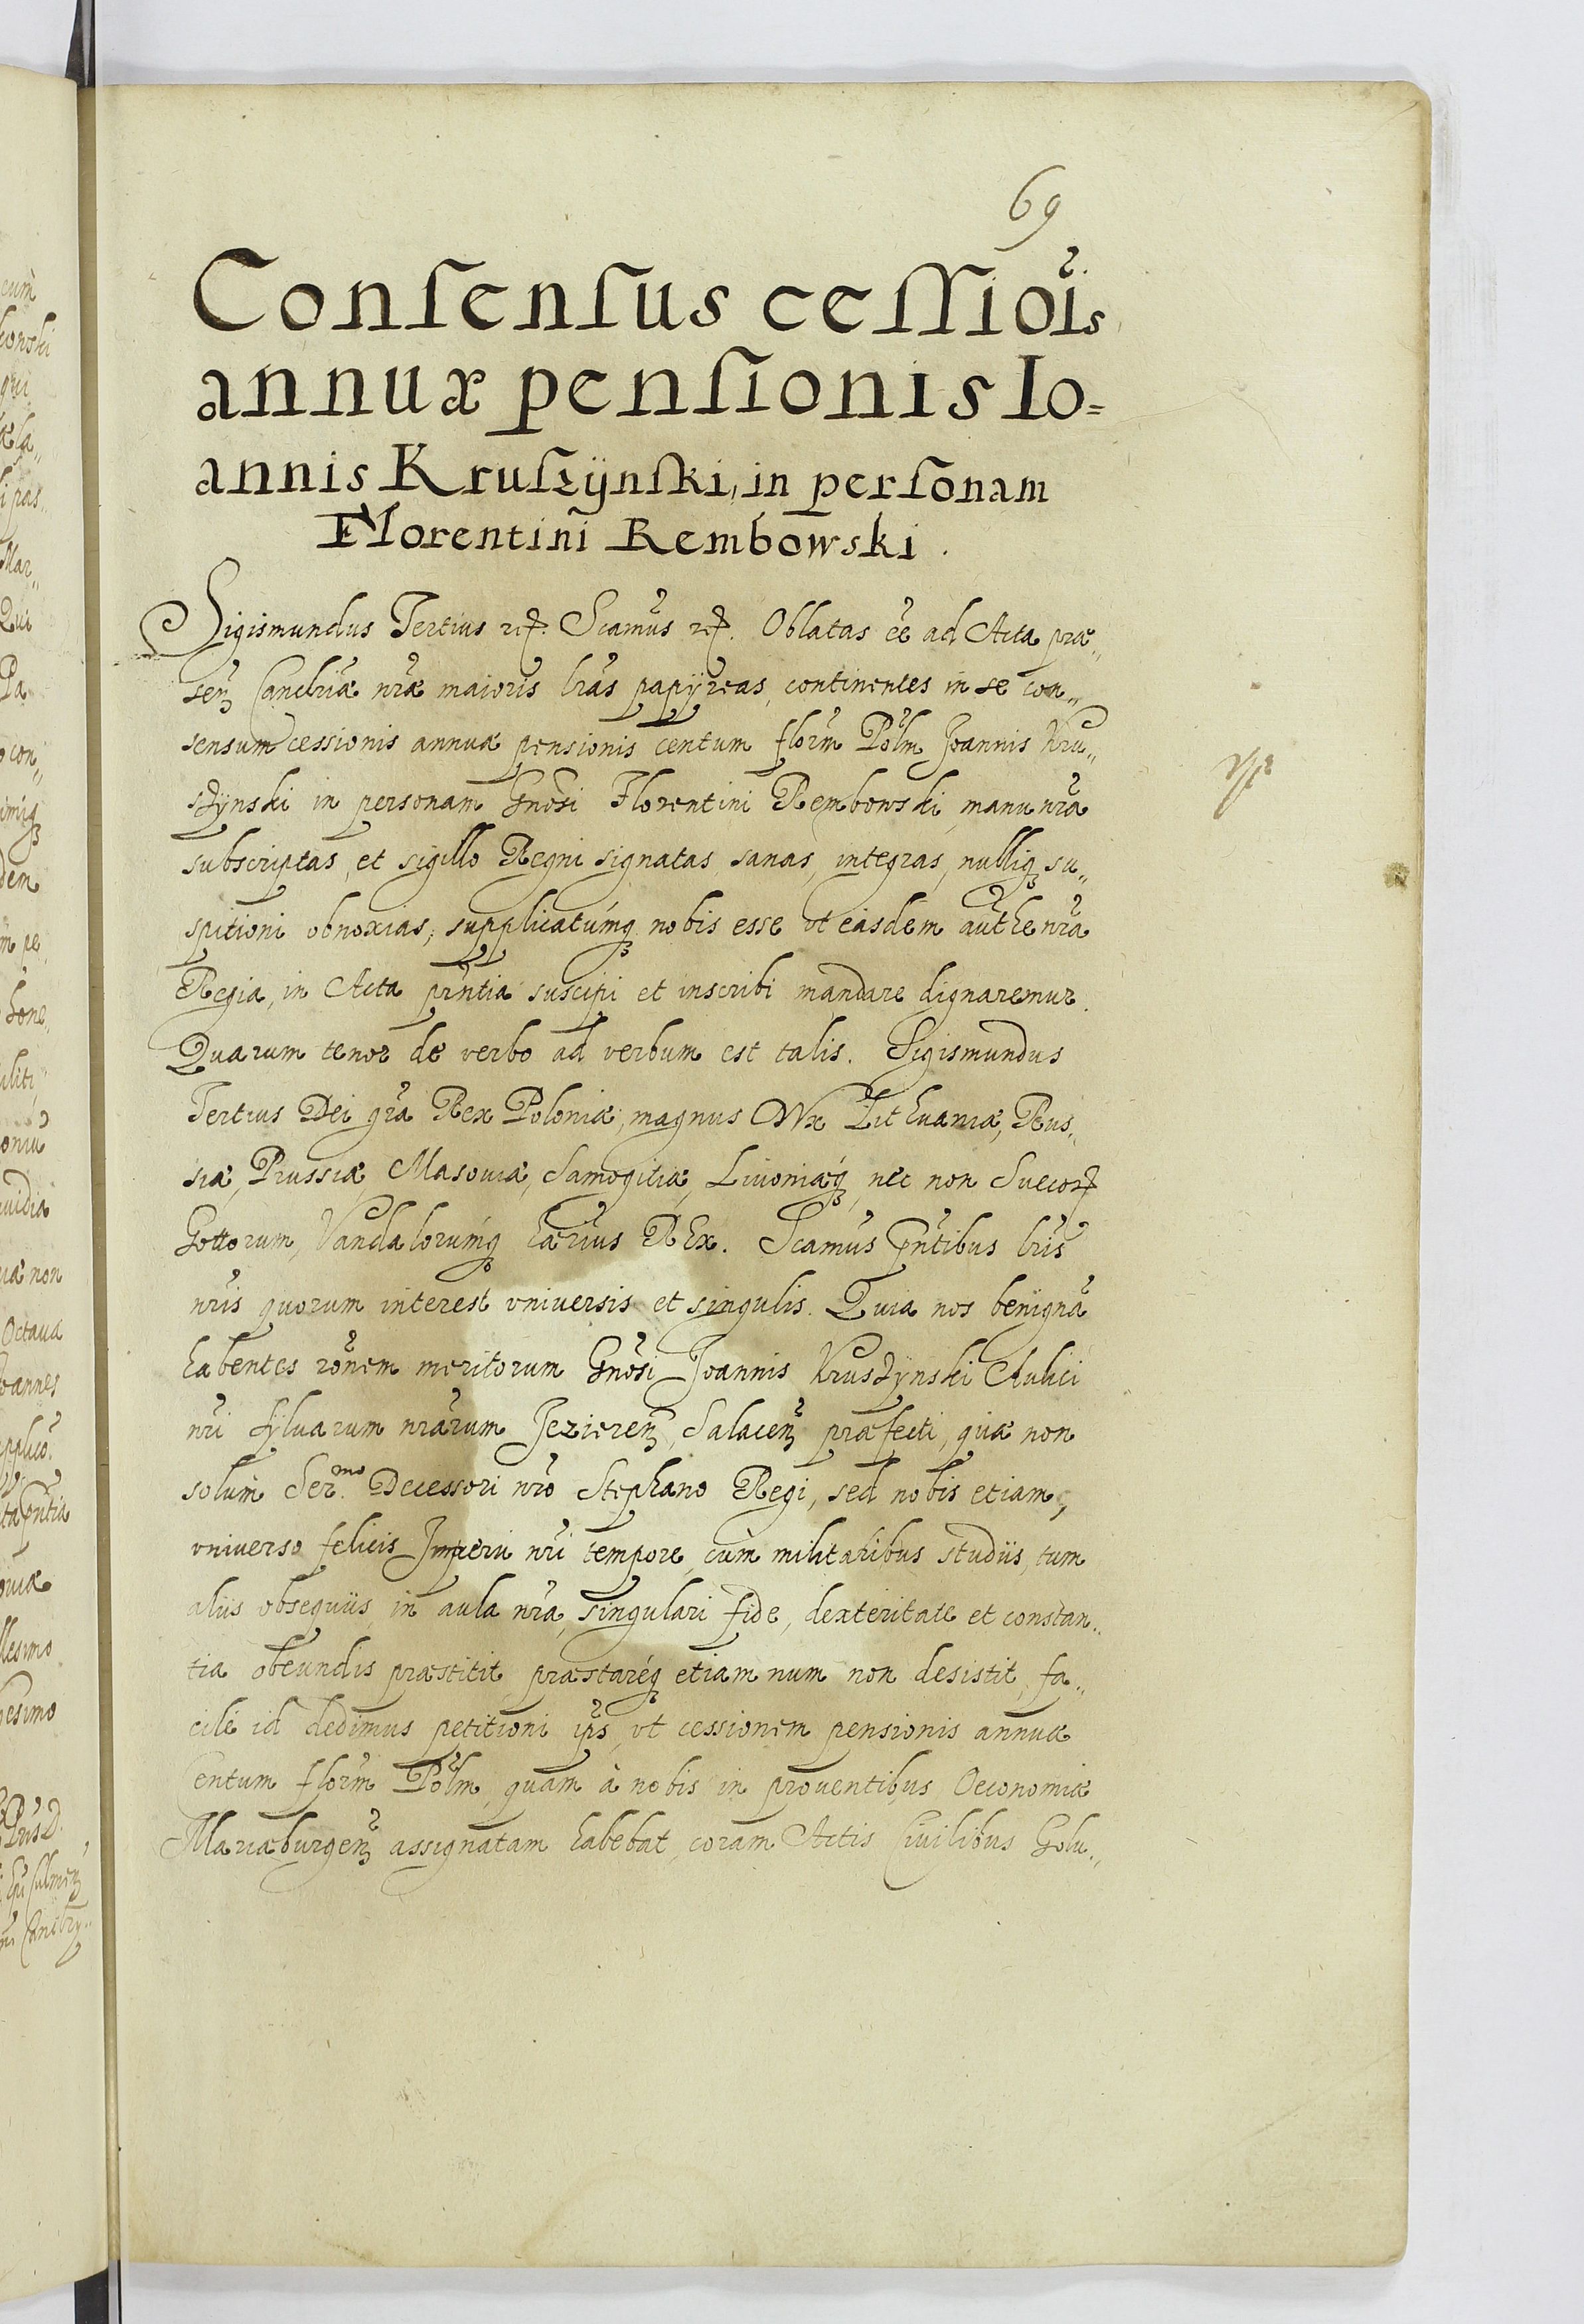 69
Conſenſus ceſſiois
annuæ penſionis Io=
annis Kruſzÿnſki, in perſonam
Florentini Rembowski.
Sigismundus Tertius etc. Scamus etc. Oblatas ee ad Acta præ„
sen Canclriæ nræ maioris lras papÿreas, continentes in se con„
sensum cessionis annuæ pensionis centum florm Polm Joannis Kru„
szÿnski in personam Gnosi Florentini Rembowski, manu nra
subscriptas, et sigillo Regni signatas, sanas, integras, nulliq su„
spitioni obnoxias, supplicatumq nobis esse ut easdem authe nra
Regia, in Acta prntia suscipi et inscribi mandare dignaremur.
Quarum tenor de verbo ad verbum est talis. Sigismundus
Tertius Dei gra Rex Poloniæ, magnus Dux Lithuaniæ, Rus„
siæ, Prussiæ, Masoviæ, Samogitiæ, Livoniæq, nec non Suecor
Gottorum, Vandalorumq hærius REx. Scamus pntibus lris
nris quorum interest vniversis et singulis. Quia nos benigna
habentes ronem meritorum Gnosi Joannis Kruszÿnski Aulici
nri sÿluarum nrarum Jezieren, Salacen præfecti, quæ non
solum Ser.mo Decessori nro Stephano Regi, sed nobis etiam,
vniverso felicis Imperii nri tempore, cùm militaribus studiis, tum
aliis obsequiis, in aula nra, singulari fide, dexteritate et constan„
tia obeundis præstitit, præstaréq etiam num non desistit, fa„
cilè id dedimus petitioni ips, vt cessionem pensionis annuæ
Centum florm Polm, quam à nobis in proventibus Oeconomiæ
Mariæburgen assignatam habebat, coram Actis Civilibus Golu„